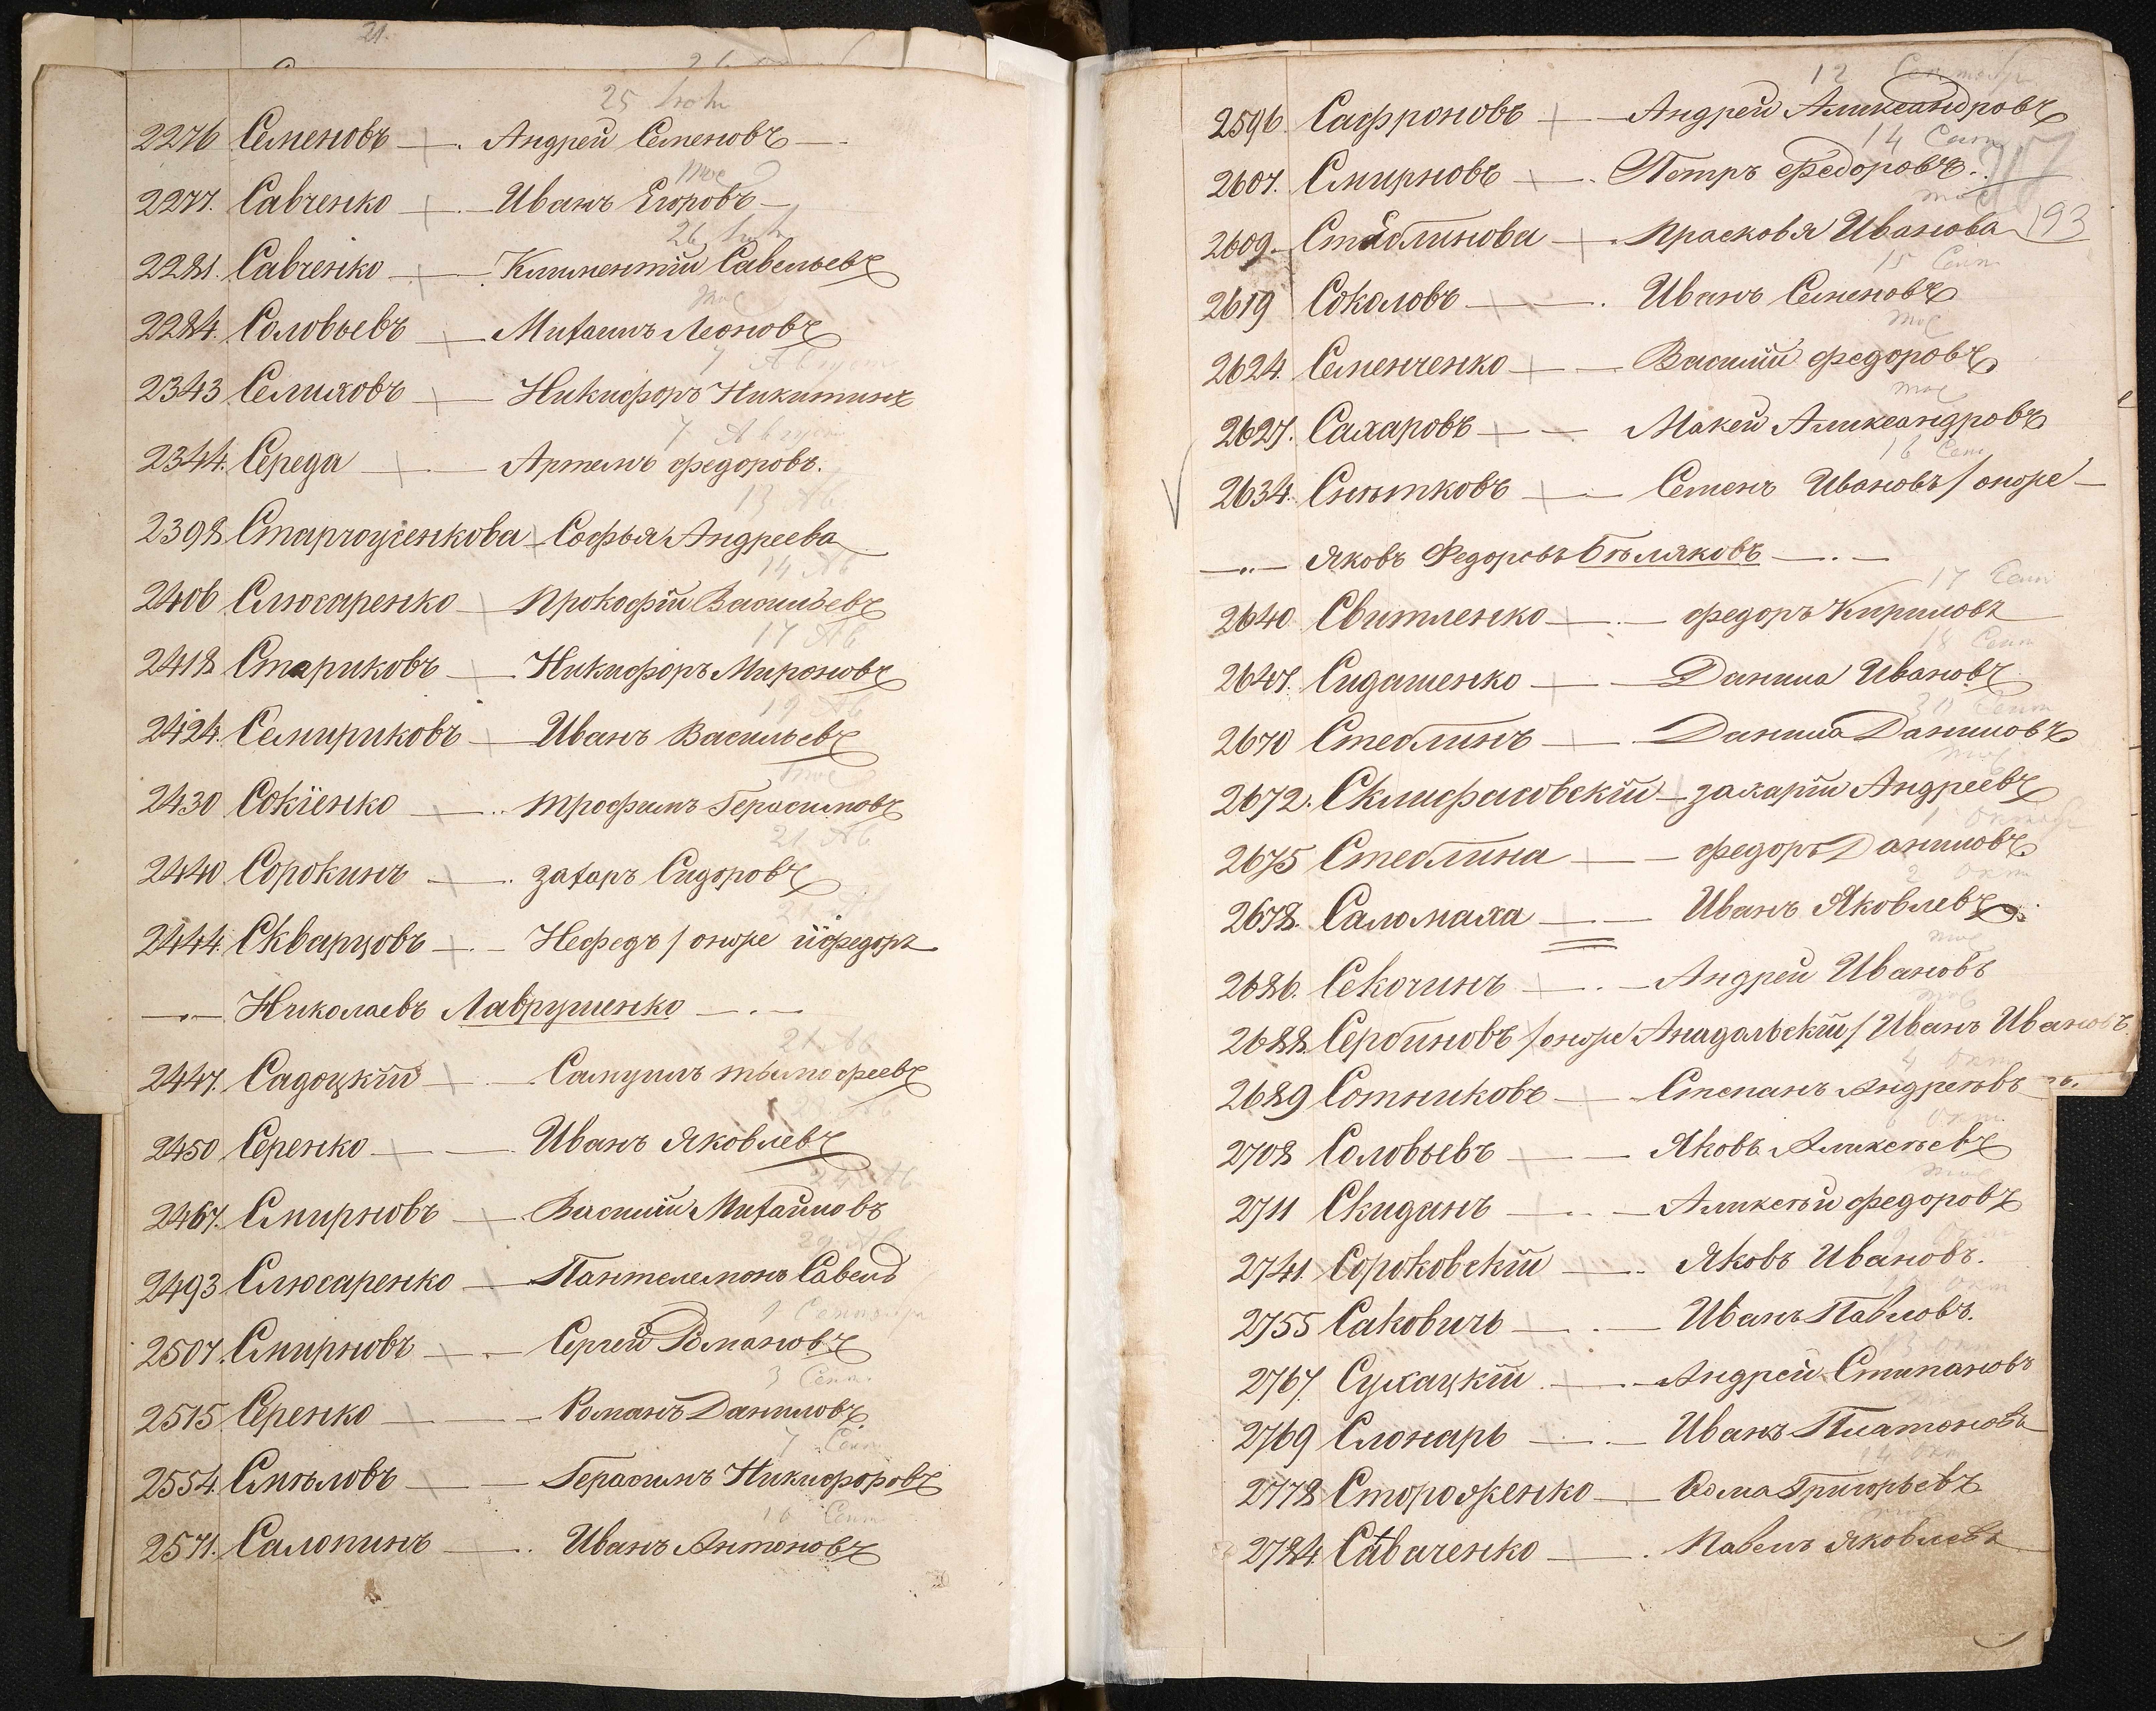 21.
25 Іюля
2276 Семеновъ — Андрей Семеновъ —
тое
2277. Савченко — Иванъ Егоровъ —
26 Іюля
2281. Савченко — Климентій Савельевъ
тое
2284. Соловьевъ — Михаилъ Леоновъ
7 Августа
2343 Селиховъ — Никифоръ Никитинъ
7 Август
2344. Середа — Артемъ Федоровъ.
13 Ав
2398 Старчоусенкова — Софья Андреева
14 Ав
2406 Слюсаренко — Прокофій Васильевъ
17 Ав
2418 Стариковъ — Никифоръ Мироновъ
19 Ав
2424. Семириковъ — Иванъ Васильевъ
тое
2430 Сокіенко — Трофимъ Герасимовъ
21 Ав
2440 Сорокинъ — Захаръ Сидоровъ
2444. Скварцовъ — Нефедъ / онже и Федоръ
—〃— Николаевъ Лаврушенко —
21 Ав
2447. Садоцкій — Самуилъ Тымофеевъ
2450 Серенко — Иванъ Яковлевъ
24 Ав
2467. Смирновъ — Василій Михайловъ
29 Ав
2493 Слюсаренко — Пантелемонъ Савельъ
2 Сентября
2507. Смирновъ — Сергей Романовъ
3 Сент.
2515 Серенко — Романъ Даниловъ
7 Сент
2554. Смѣловъ — Герасимъ Никифоровъ
10 Сент
2571. Салопинъ — Иванъ Антоновъ
12 Сентября
2596. Сафроновъ — Андрей Александровъ
14 Сент
2607. Смирновъ — Петръ Федоровъ.
тое
2609. Стеблинова — Прасковья Иванова 193
15 Сент
2619 Соколовъ — Иванъ Семеновъ
тое
2624. Семенченко — Василій Федоровъ
тое
2627. Сахаровъ — Макей Аликсандровъ
16 Сент
2634. Снѣтковъ — Семенъ Ивановъ / онже —
—〃— Яковъ Федоровъ Бѣляковъ —
17 Сент
2640 Свитленко — Федоръ Кириловъ
18 Сент
2647. Сидашенко — Данила Ивановъ
30 Сент
2670 Стеблинъ — Данила Даниловъ
тое
2672. Склифасовскій — Захарій Андреевъ
1 Октября
2675 Стеблина — Федоръ Даниловъ
2 Окт
2678. Саломаха — Иванъ Яковлевъ
тое
2686. Секочинъ — Андрей Ивановъ
тое
2688 Сербиновъ / онже Анадольскій / Иванъ Ивановъ
4 Окт
2689 Сотниковъ — Степанъ Андреевъ
6 Окт.
2708 Соловьевъ — Яковъ Аликсѣевъ
тое
2711 Скиданъ — Аликсѣй Федоровъ
2741. Сороковскій — Яковъ Ивановъ.
Окт
2755 Саковичъ — Иванъ Павловъ.
13 Окт
2767. Сухацкій — Андрей Стипановъ
2769 Слонарь — Иванъ Платоновъ
14 Окт
2778 Стороженко — Фома Григорьевъ
2784. Саваченко — Павелъ Яковлевъ